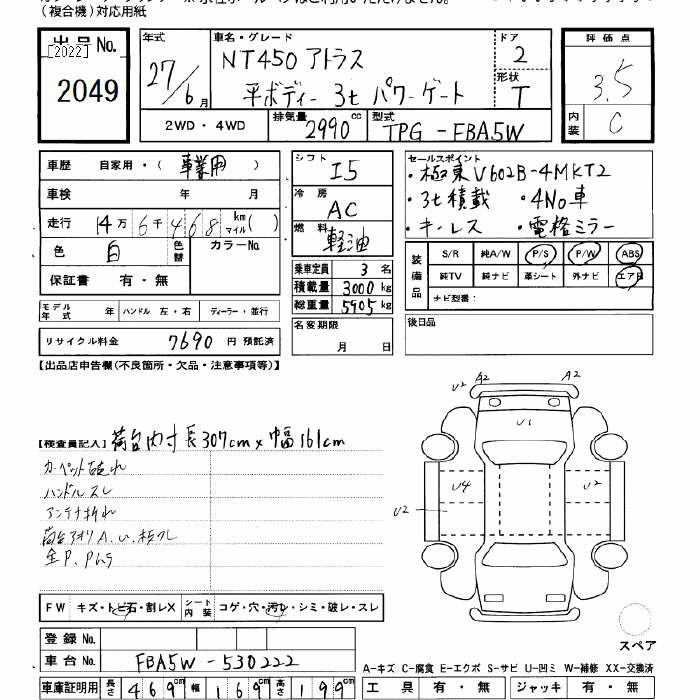 (複合機)対応用紙
出品No.
[2022]
2049
年式
27/6月
車名・グレード
NT450 アトラス
平ボディー 3t パワーゲート
ドア
2
形状
T
評価点
3.5
内装
C
2WD・4WD
排気量
2990 cc
型式
TPG-FBA5W
車歴 自家用・(車業用)
車検 年 月
走行 14万6千468 km マイル( )
色 白 色替 カラーNo.
保証書 有・無
シフト
I5
冷房
AC
燃料
軽油
乗車定員 3 名
積載量 3000 kg
総重量 5905 kg
セールスポイント
・極東V602B-4MKT2
・3t積載 ・4No車
・キーレス ・電格ミラー
装備品
S/R 純A/W P/S P/W ABS
純TV 純ナビ 革シート 外ナビ エアB
ナビ型番:
モデル年式 年 ハンドル 左・右 ディーラー・並行
リサイクル料金 7690 円 預託済
名変期限
月 日
後日品
【出品店申告欄(不良箇所・欠品・注意事項等)】
【検査員記入】 荷台内寸長307cm×幅161cm
カーペット破れ
ハンドルスレ
アンテナ折れ
U2 A2 A2
U1
U4 U2
U2
FW キズ・トビ石・割レX シート内装 コゲ・穴・汚レ・シミ・破レ・スレ
登録No.
車台No. FBA5W-530222
車庫証明用 長さ 469cm 幅 169cm 高さ 199cm
スペア
A-キズ C-腐食 E-エクボ S-サビ U-凹ミ W-補修 XX-交換済
工具 有・無 ジャッキ 有・無